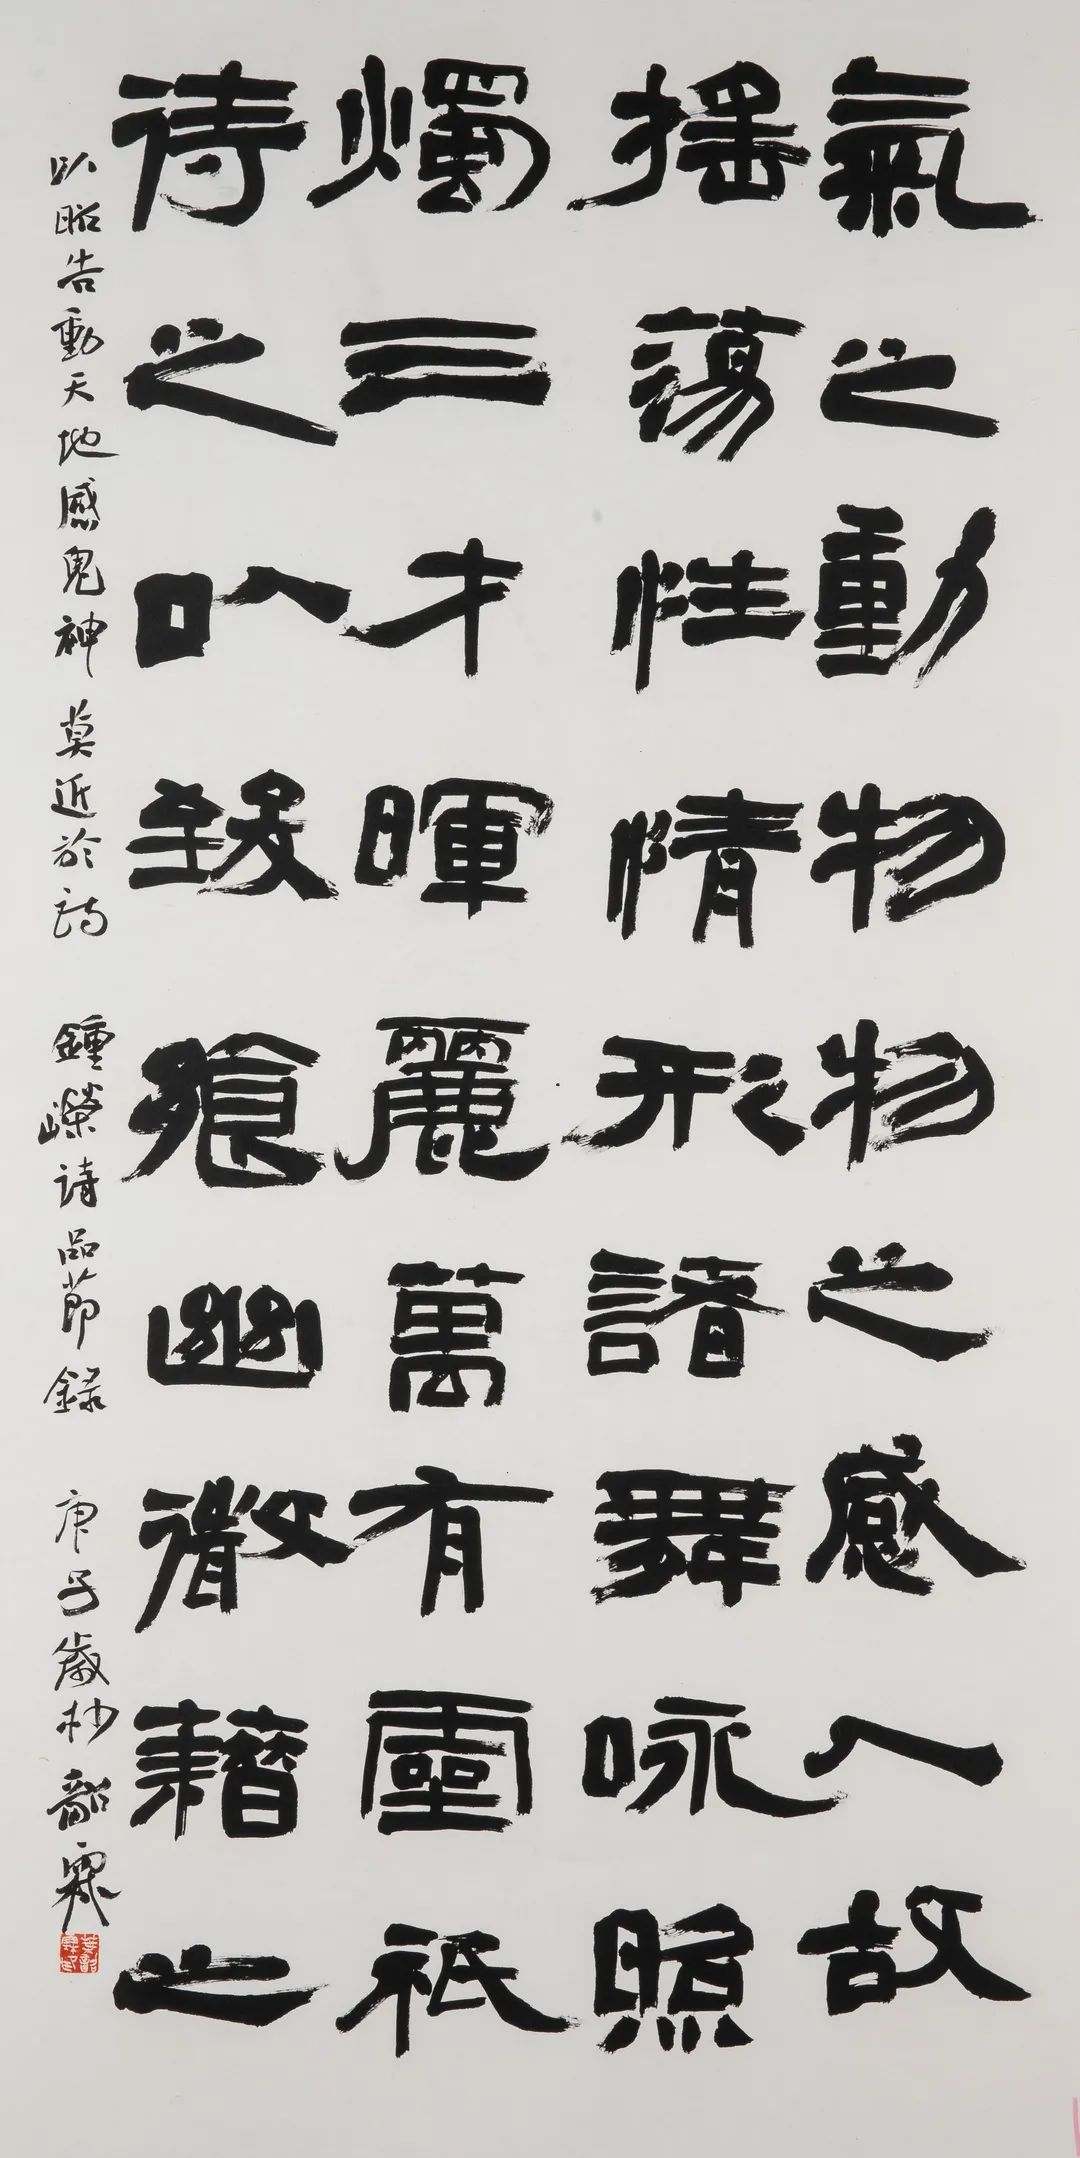 氣之動物物之感人故
搖蕩性情形諸舞咏照
燭三才暉麗萬有靈祇
待之以致飨幽微藉之
以昭告動天地感鬼神莫近於詩 鍾嶸詩品節録 庚子歲杪韶霖